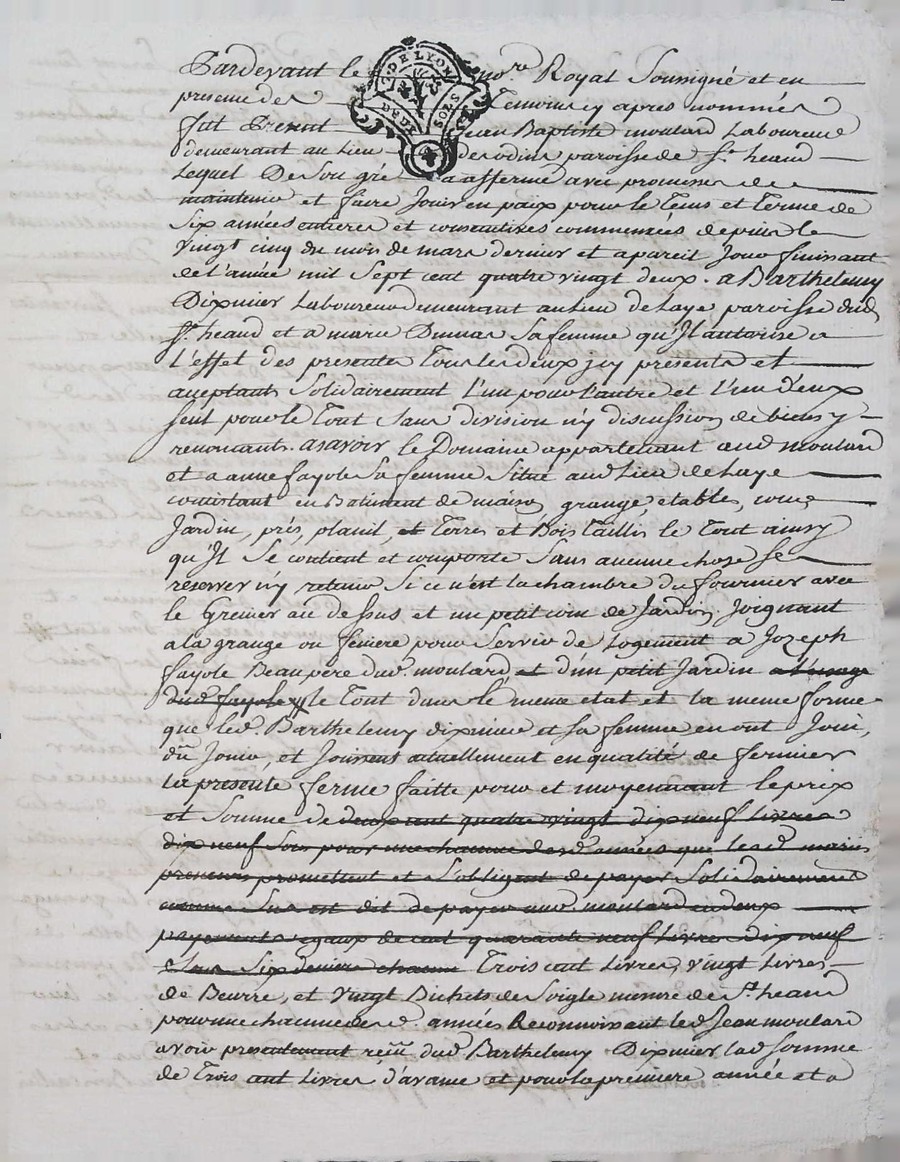 G. DE LYON
DEUX SOLS
Pardevant le no.re Royal Soussigné et en
presence des Temoins cy apres nommés
fut Present Jean Baptiste moulard Laboureur
demeurant au Lieu paroisse de St. heand
Lequel De Son gré a affermé avec promesses de
maintenir et faire Jouir en paix pour le tems et terme de
Six années entieres et consecutives commencées depuis le
vingt cinq du mois de mars dernier et apareil Jour finissant
de l'année mil Sept cent quatre vingt deux. a Barthelemy
Dixmier Laboureur demeurant au Lieu de Laye paroisse dud.
St. heand et a marie Sa femme qu'Il autorise a
L'effet des presentes Tous les deux jcy presents et
aceptants Solidairement l'un pour l'autre et l'un d'eux
seul pour le Tout Sans division n'y discussion de biens y
renoncants. asavoir le Domaine appartenant aud moulard
et a anne fayole Sa femme Situé aud Lieu de Laye
consistant en Batiment de maison, grange, etable, cour,
Jardin, prés, et Terres et Bois Taillis le Tout ainsy
qu'Il Se contient et comporte Sans aucune chose Se
reserver n'y retenir Si ce n'est la chambre du fournier avec
le Grenier au dessus et un petit coin de Jardin Joignant
a la grange ou feniere pour Servir de Logement a Jozeph
fayole Beaupere dud. moulard et d'un petit Jardin a l'usage
dud fayole le Tout dans le meme etat et la meme forme
que led. Barthelemy dixmier et Sa femme en ont Joui,
dû Jouir, et Jouissent actuellement en qualité de fermier
La presente ferme faitte pour et moyennant le prix
et Somme de deux cent quatre vingt dix neuf Livres
dix neuf Sous pour une chacune desd. années que lesd. mariés
preneurs promettent et S'obligent de payer Solidairement
comme Sus est dit de payer aud. moulard en deux
payements egaux de cent quarante neuf Livres dix neuf
Sous Six deniers chacun Trois cent Livres, vingt Livres
de Beurre, et vingt Bichets de Soigle mesure de St. heand
pour une chacune desd. années Reconnoissant led. Jean moulard
avoir presentement reçû dud. Barthelemy Dixmier lad. Somme
de Trois cent Livres d'avance et pour la premiere année et a